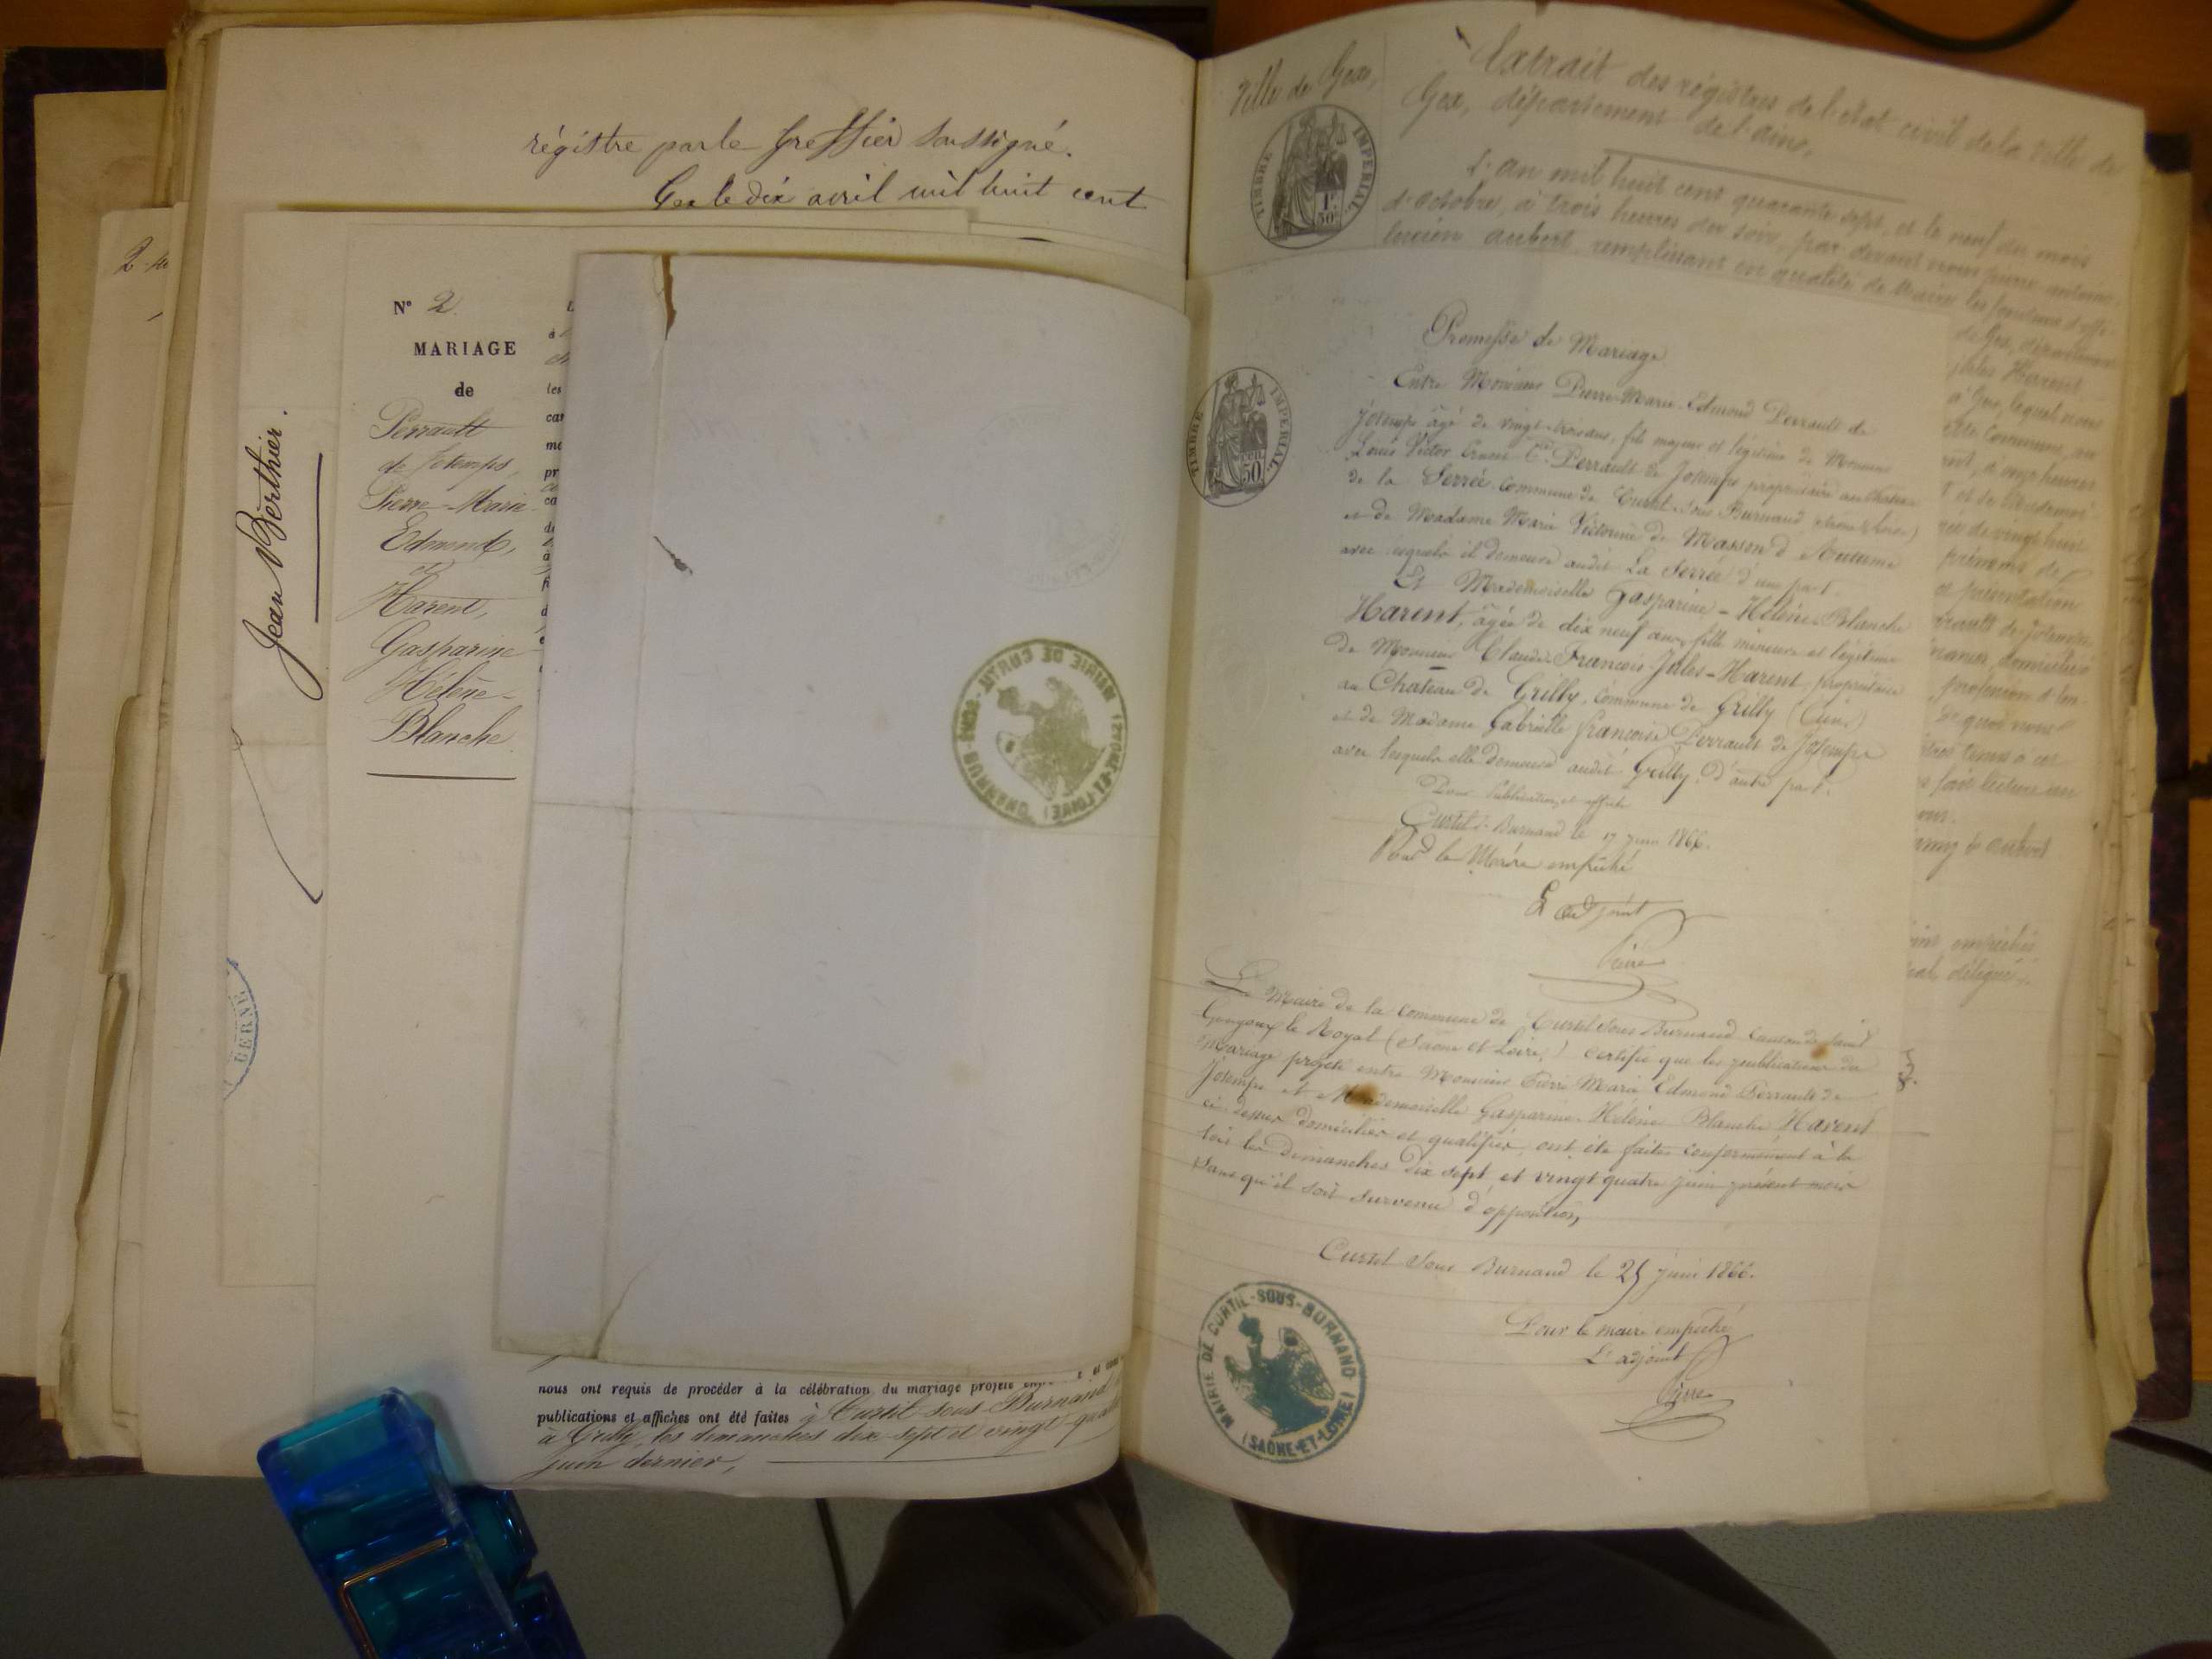 régistre par le greffier soussigné.
Gex le dix avril mil huit cent
2
Jean Berthier.
BERNE
Nº 2
MARIAGE
de
Perrault
de Jotemps,
Pierre-Marie-
Edmond,
et
Harent,
Gasparine-
Hélène-
Blanche
les
MAIRIE DE CURTIL-SOUS-BURNAND
(SAONE-ET-LOIRE)
nous ont requis de procéder à la célébration du mariage projeté
publications et affiches ont été faites à Curtil-sous-Burnand
à Grilly, les dimanches dix-sept et vingt-quatre
juin dernier,
Ville de Gex,
TIMBRE IMPERIAL
1F 50C
Extrait des régistres de l'état civil de la ville de
Gex, département de l'ain.
L'an mil huit cent quarante sept, et le neuf du mois
d'octobre, à trois heures du soir, par devant nous pierre antoine
lucien aubert, remplissant en qualité de Maire les fonctions d'offi-
de Gex, département
jules Harent
à Gex, lequel nous
prénoms de
et présentation
rault de Jotemps
domiciliés
De quoi nous
fait lecture
aubert
empêchés
délégué
TIMBRE IMPERIAL
50 CEN
Promesse de Mariage
Entre Monsieur Pierre-Marie-Edmond Perrault de
Jotemps âgé de vingt-trois ans, fils majeur et légitime de Monsieur
Louis Victor Ernest Cte Perrault de Jotemps propriétaire au Château
de la Serrée commune de Curtil-sous-Burnand (Saône & Loire)
et de Madame Marie Victorine de Masson d'Autume
avec lesquels il demeure audit La Serrée d'une part.
Et Mademoiselle Gasparine-Hélène-Blanche
Harent, âgée de dix neuf ans, fille mineure et légitime
de Monsieur Claude-François-Jules-Harent, propriétaire
au Château de Grilly, commune de Grilly (Ain)
et de Madame Gabrielle françoise Perrault de Jotemps
avec lesquels elle demeure audit Grilly, d'autre part.
Pour Publication et affiche
Curtil s. Burnand le 17 juin 1866.
Pour le Maire empêché
L'adjoint
Le Maire de la commune de Curtil sous Burnand canton de Saint
Gengoux le Royal (Saône et Loire,) certifie que les publications du
mariage projeté entre Monsieur Pierre Marie Edmond Perrault de
Jotemps et Mademoiselle Gasparine-Hélène Blanche Harent
ci-dessus domiciliés et qualifiés, ont été faites conformément à la
loi les dimanches dix sept et vingt quatre juin présent mois
sans qu'il soit survenu d'opposition,
Curtil Sous Burnand le 25 juin 1866.
Pour le maire empêché
L'adjoint
MAIRIE DE CURTIL-SOUS-BURNAND
(SAONE-ET-LOIRE)